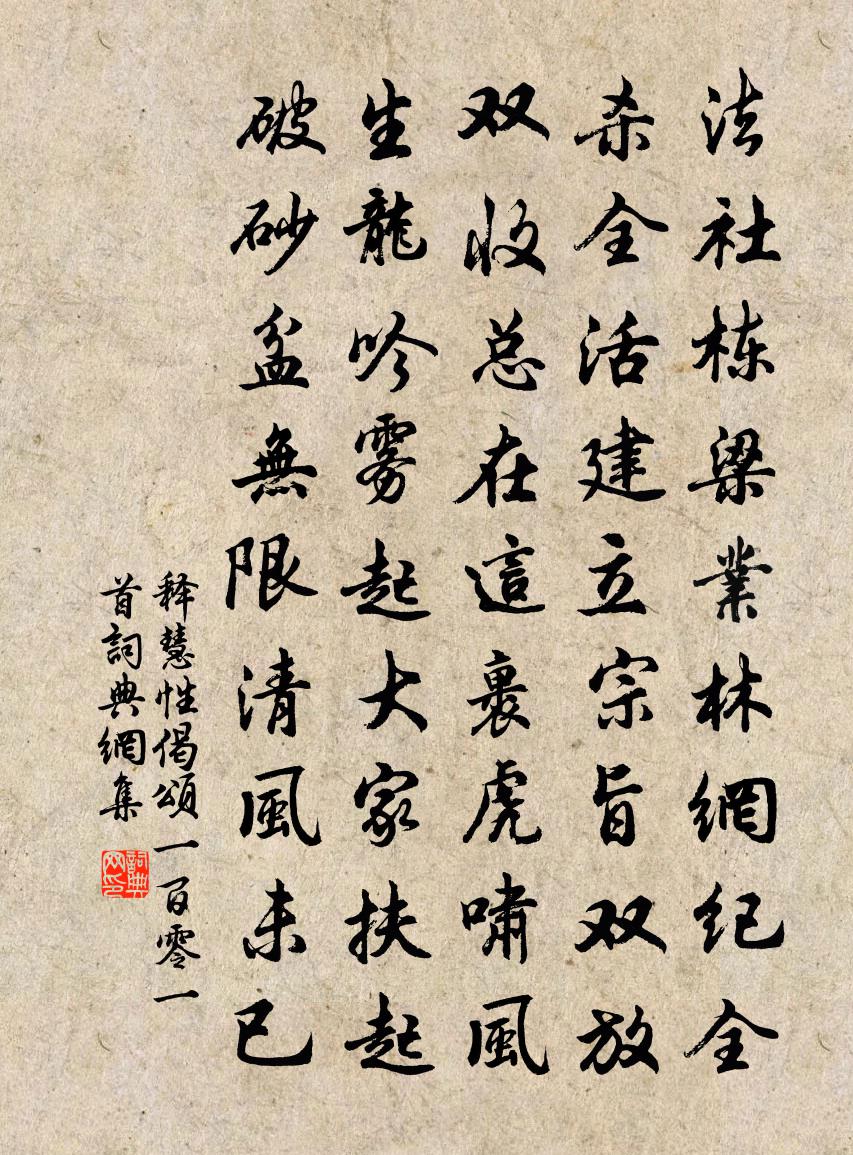 法社栋梁業林網纪全
杀全活建立宗旨双放
双收总在這裏虎啸風
生龍吟雾起大家扶起
破砂盆無限清風未已
释慧性偈頌一百零一
首詞典網集
詞典网印